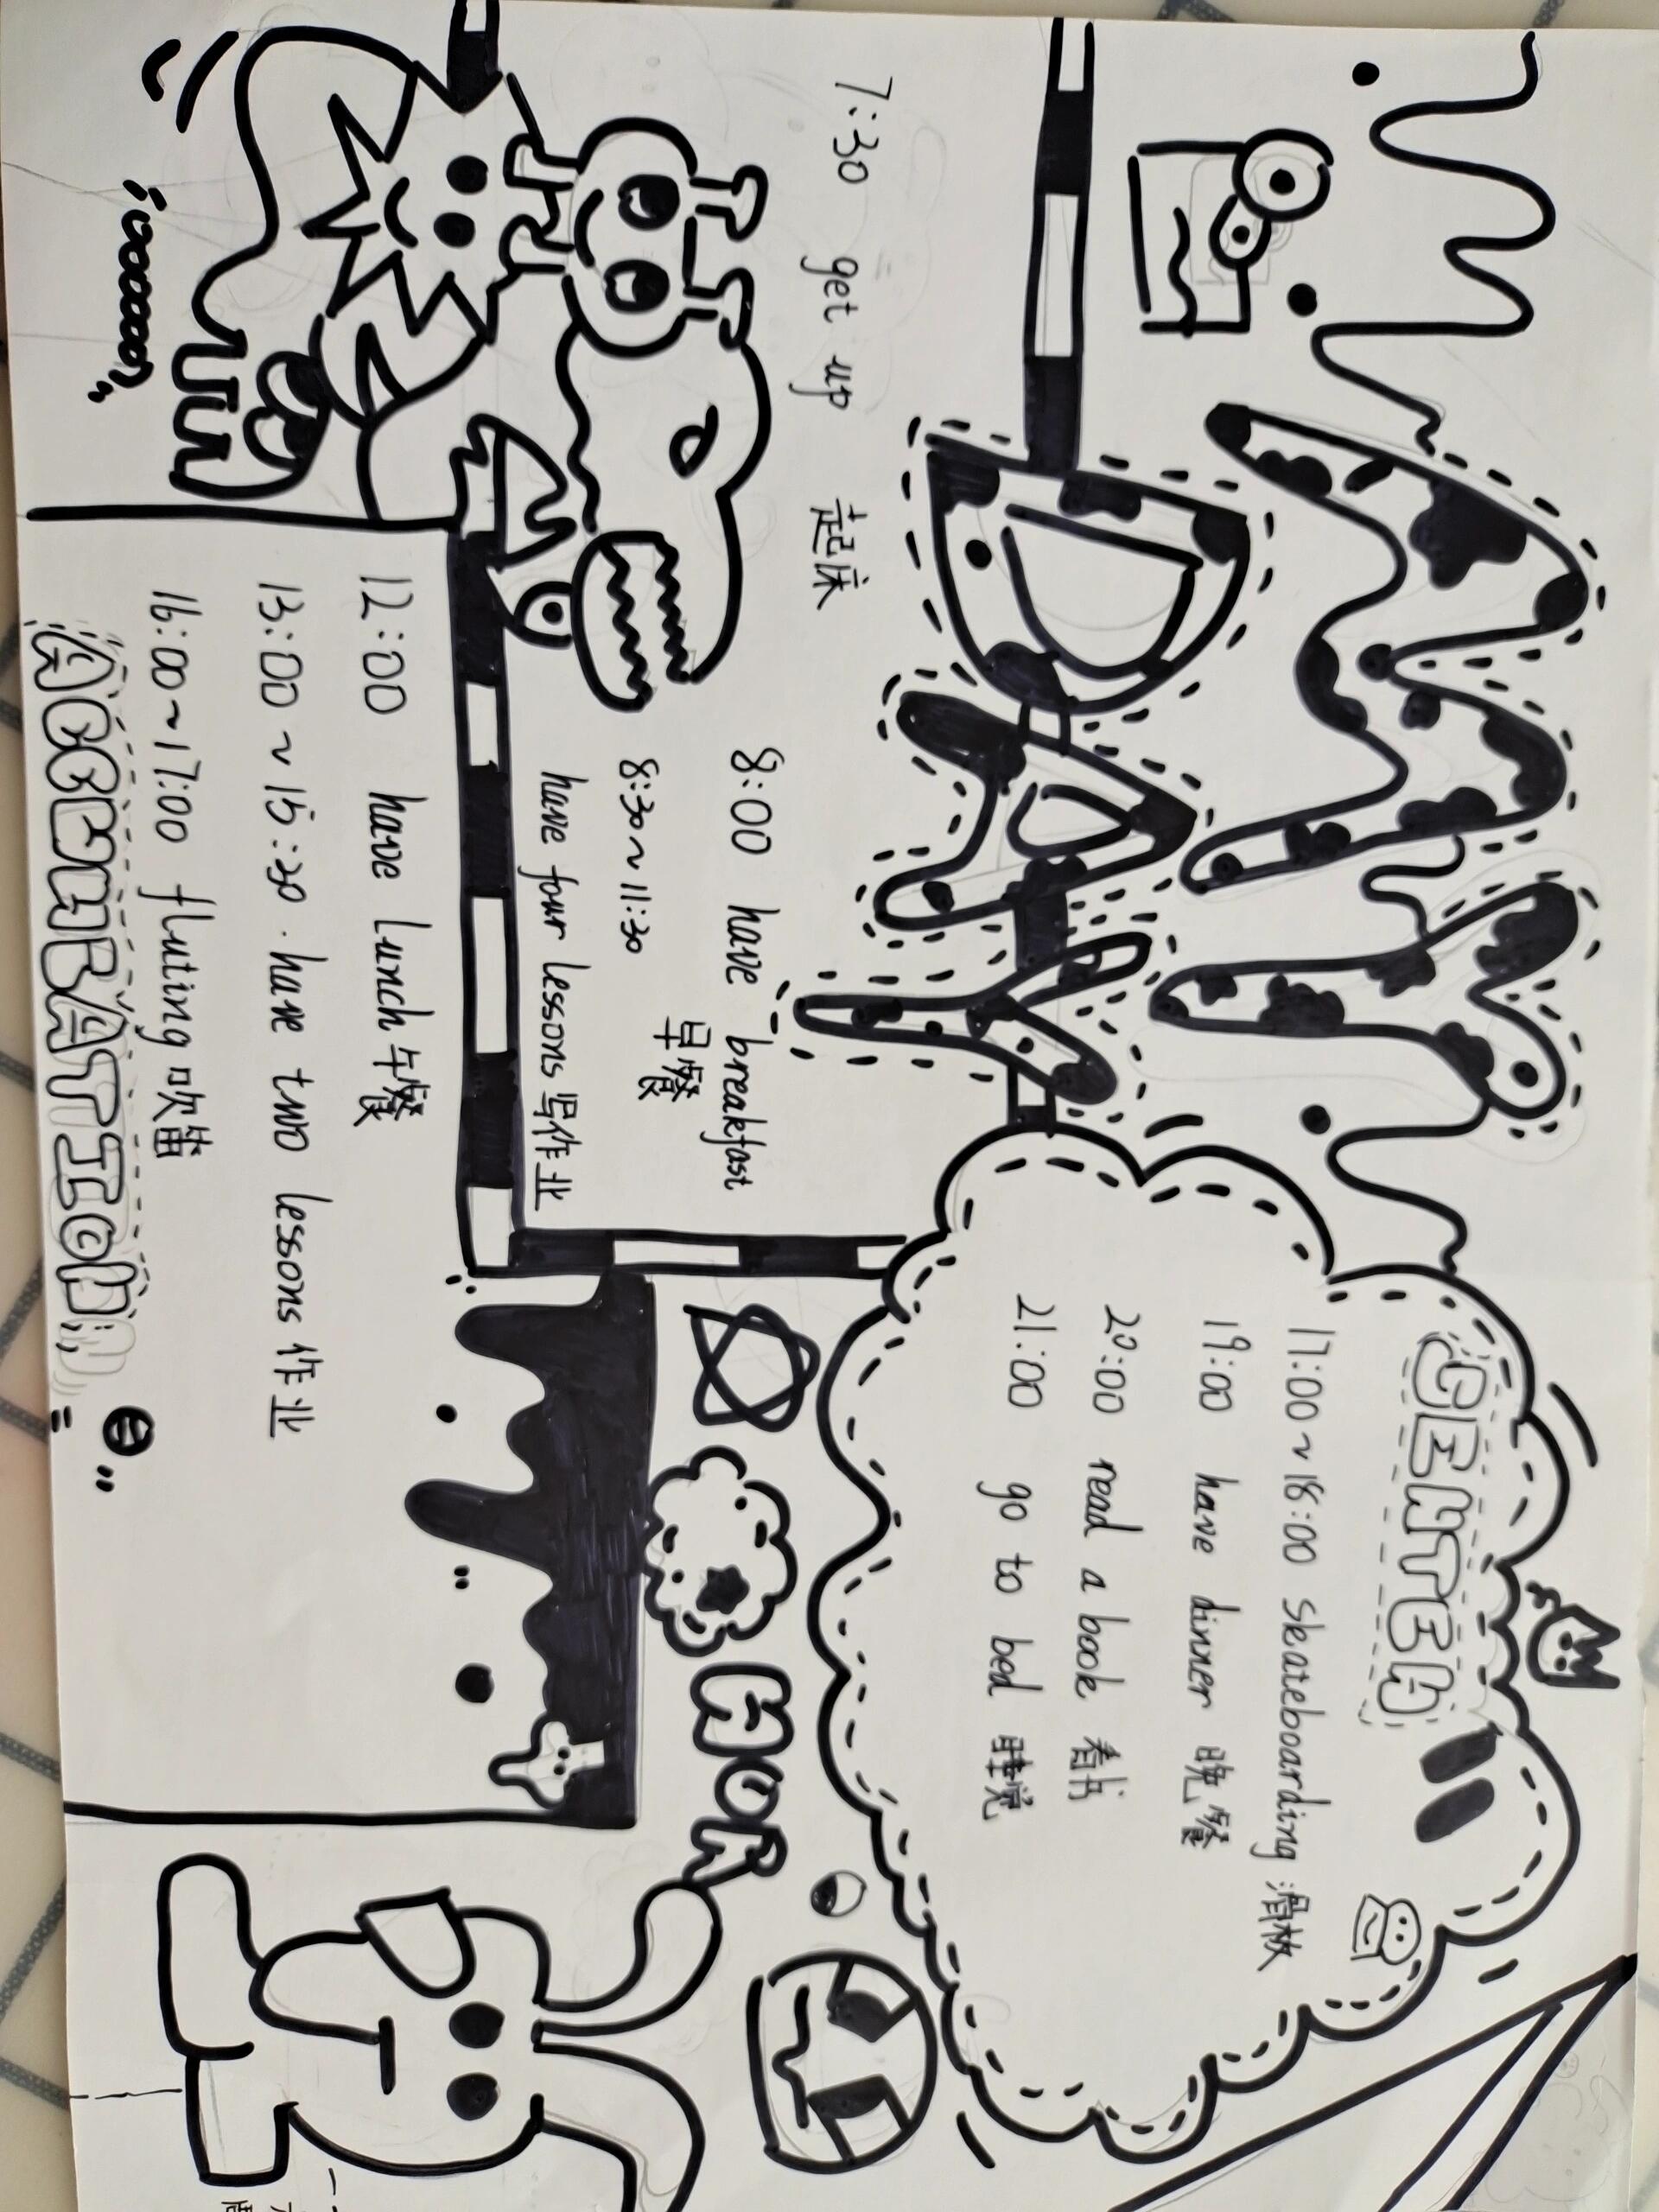 MY
DAY
7:30 get up 起床
8:00 have breakfast
早餐
8:30~11:30
have four lessons 写作业
12:00 have lunch 午餐
13:00~15:30. have two lessons 作业
16:00~17:00 fluting 吹笛
17:00~18:00 skateboarding 滑板
19:00 have dinner 晚餐
20:00 read a book 看书
21:00 go to bed 睡觉
HOP